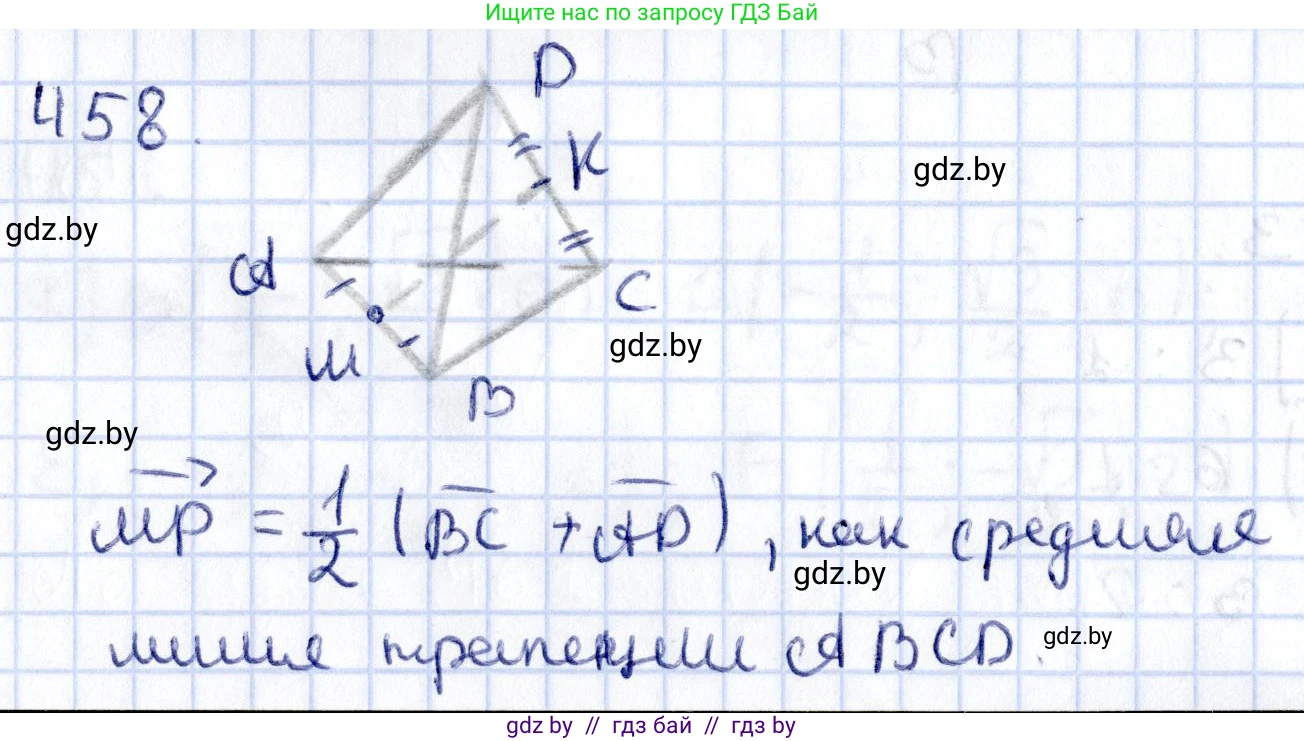 Ищите нас по запросу ГДЗ Бай
458.
D
K
gdz.by
gdz.by
A
C
gdz.by
M
B
gdz.by
MP = 1/2 (BC + AD), как средняя
gdz.by
линия трапеции ABCD.
gdz.by
gdz.by // гдз бай // гдз by